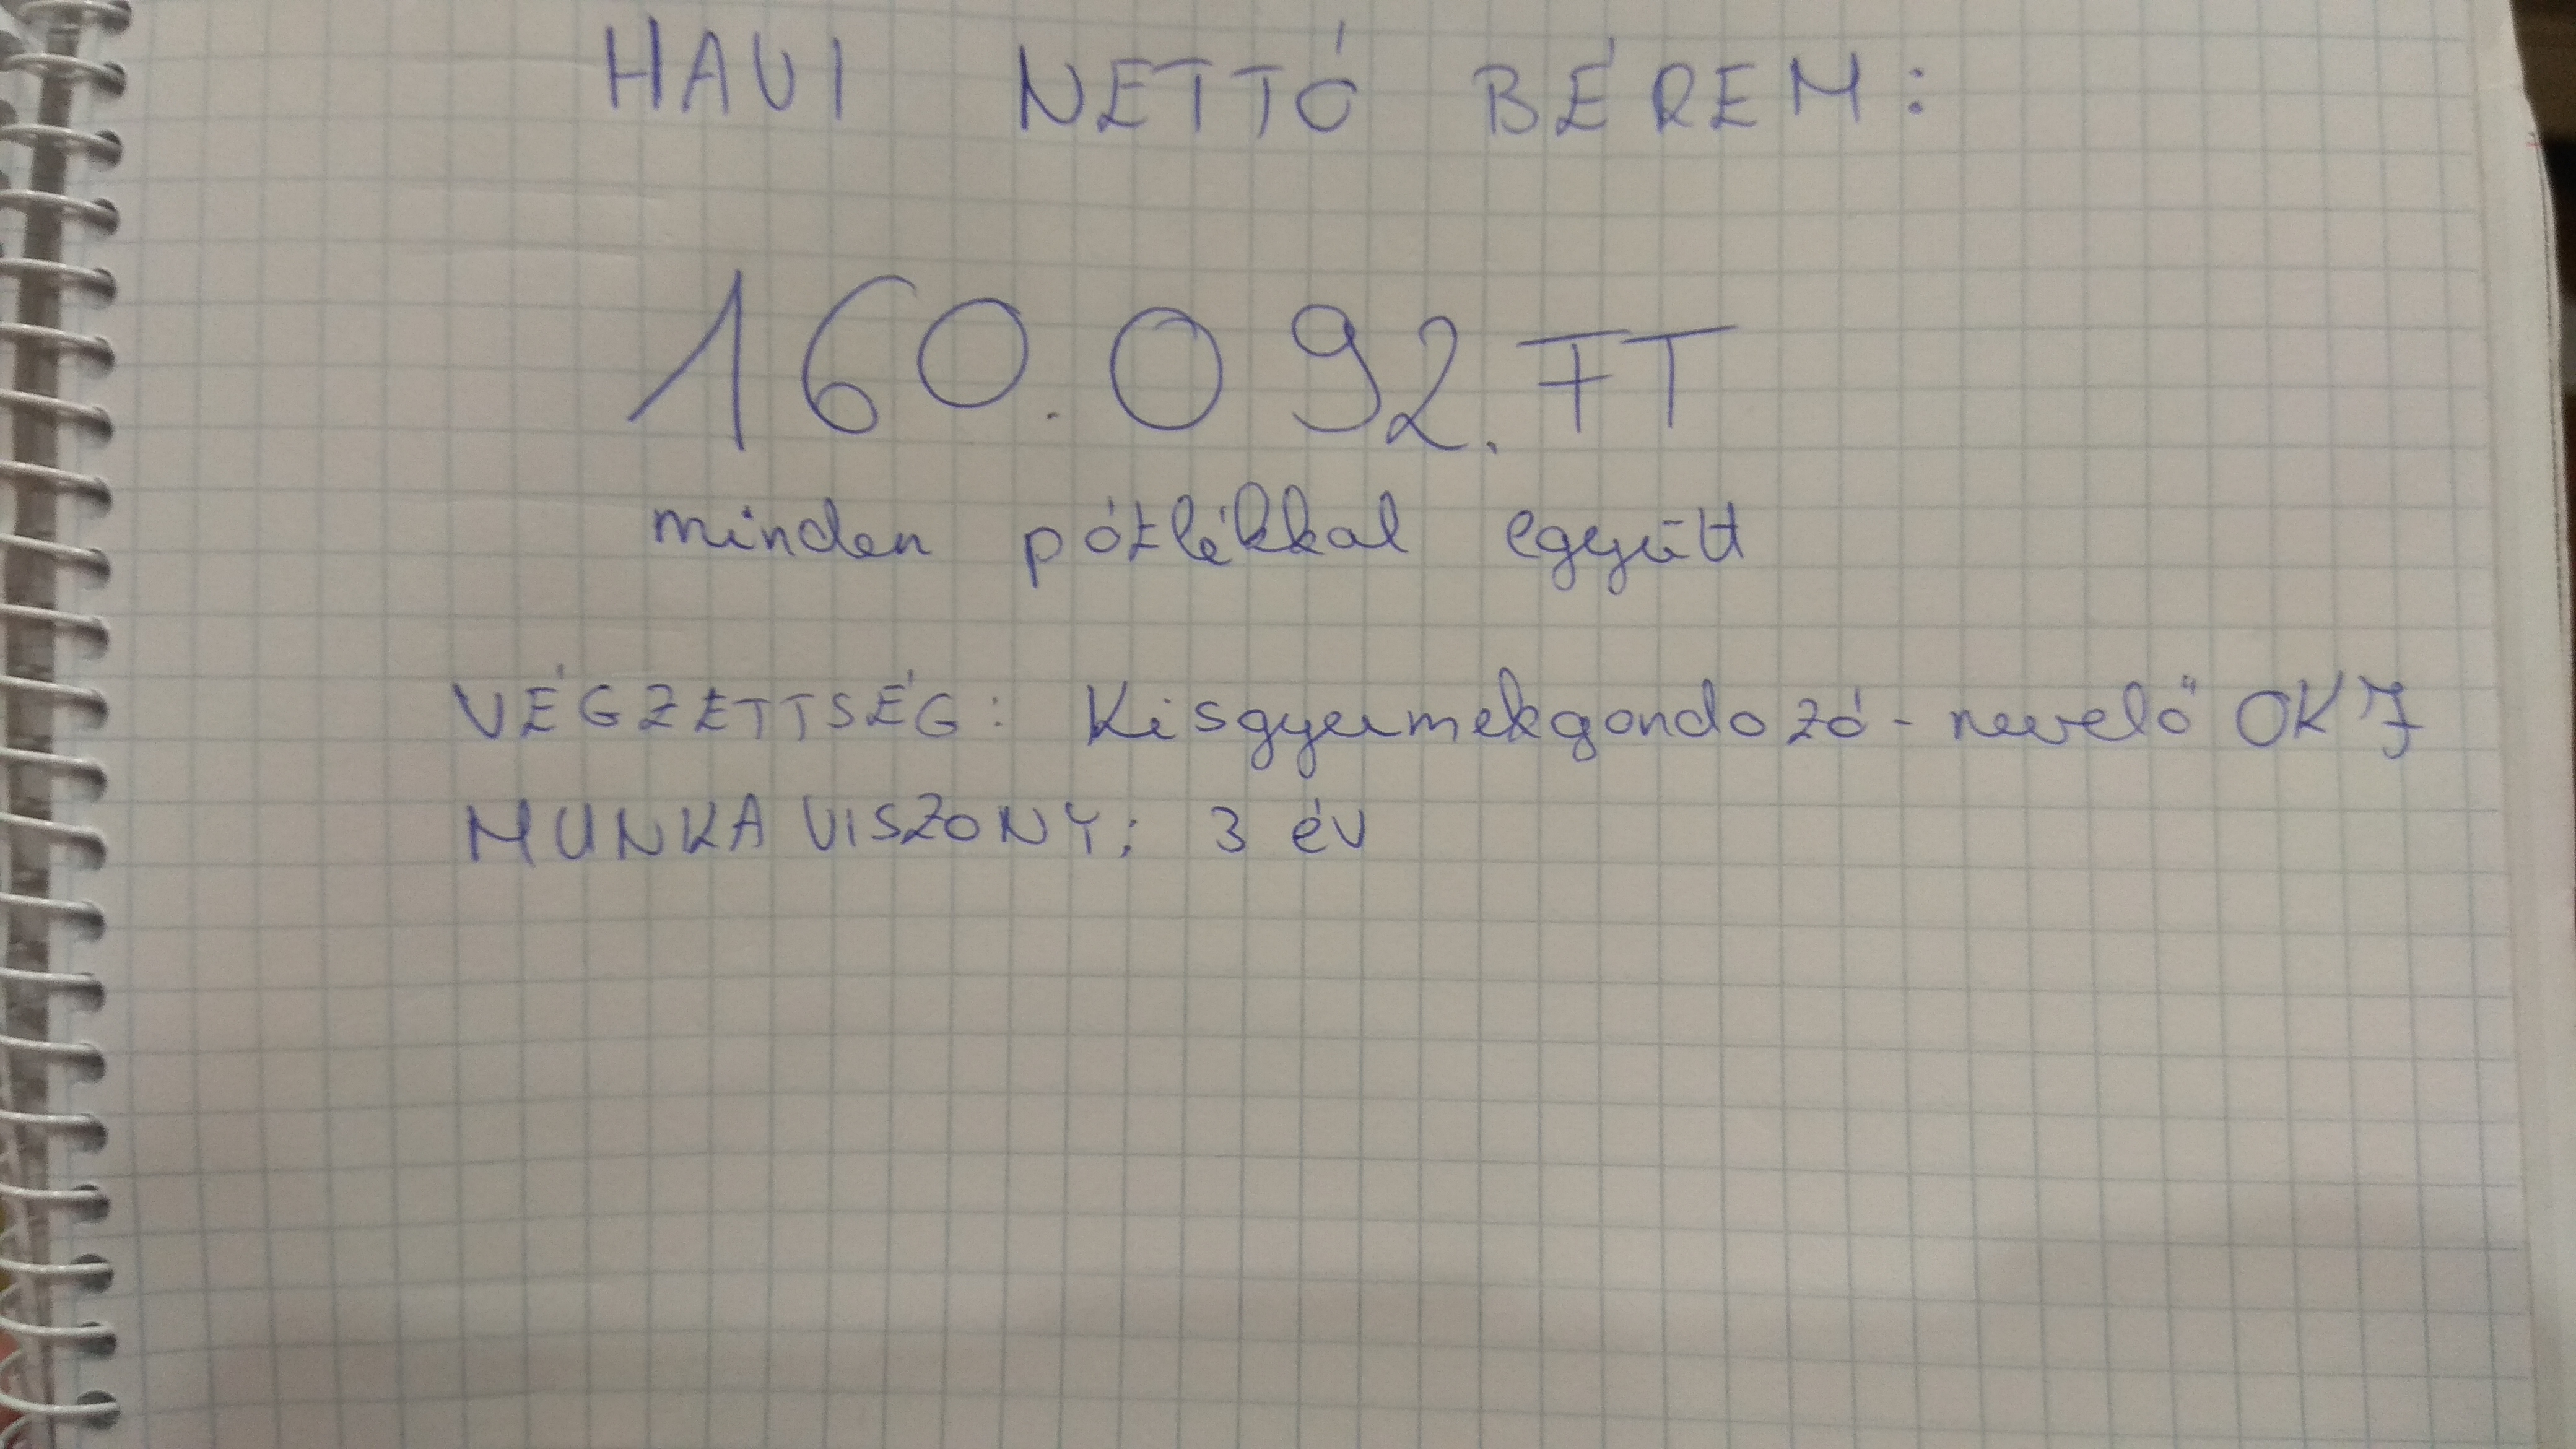 HAVI NETTÓ BÉREM:
160.092.FT
minden pótlékkal együtt
VÉGZETTSÉG: Kisgyermekgondozó-nevelő OKJ
MUNKAVISZONY: 3 év